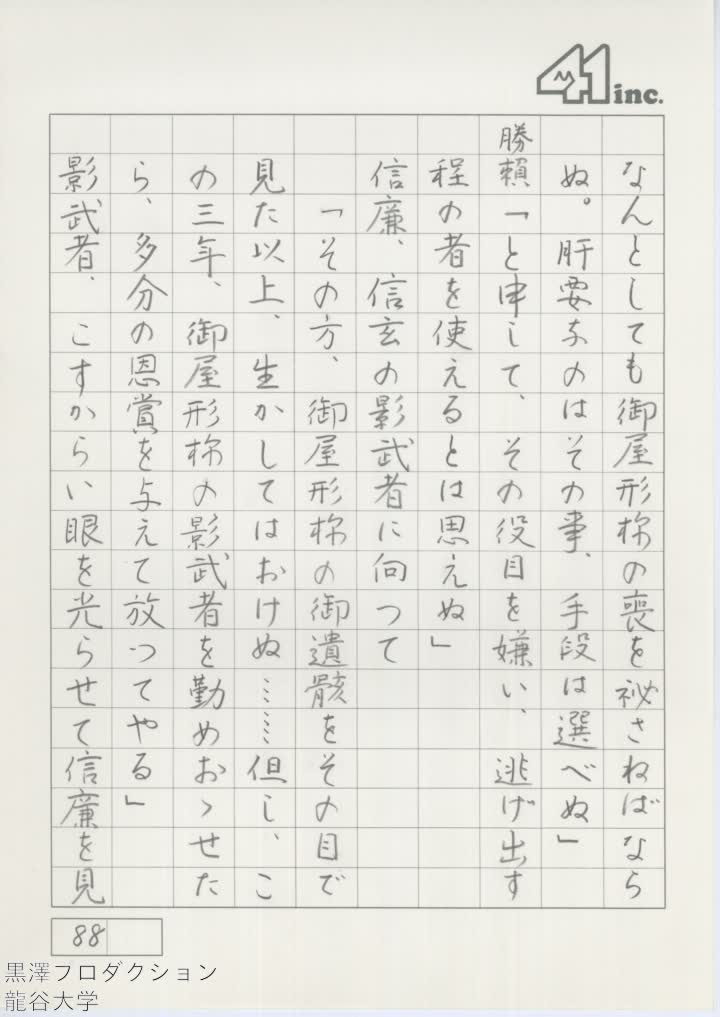 41 inc.
なんとしても御屋形様の喪を祕さねばなら
ぬ。肝要なのはその事、手段は選べぬ」
勝頼「と申して、その役目を嫌い、逃げ出す
程の者を使えるとは思えぬ」
信廉、信玄の影武者に向って
「その方、御屋形様の御遺骸をその目で
見た以上、生かしてはおけぬ……但し、こ
の三年、御屋形様の影武者を勤めおゝせた
ら、多分の恩賞を与えて放ってやる」
影武者、こすからい眼を光らせて信廉を見
88
黒澤プロダクション
龍谷大学